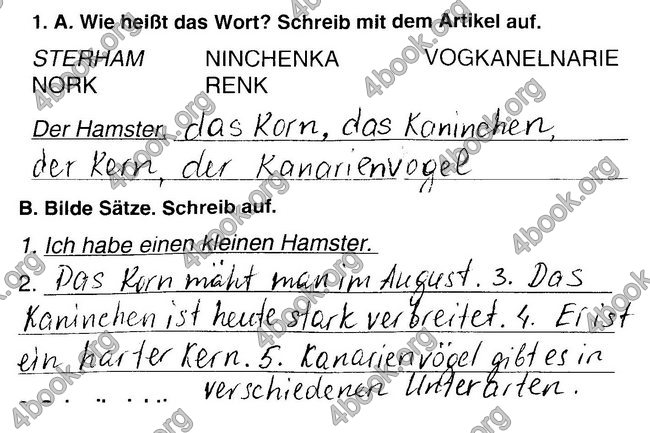 1. A. Wie heißt das Wort? Schreib mit dem Artikel auf.
STERHAM NINCHENKA VOGKANELNARIE
NORK RENK
Der Hamster, das Korn, das Kaninchen,
der Kern, der Kanarienvogel
B. Bilde Sätze. Schreib auf.
1. Ich habe einen kleinen Hamster.
2. Das Korn mäht man im August. 3. Das
Kaninchen ist heute stark verbreitet. 4. Er ist
ein harter Kern. 5. Kanarienvögel gibt es in
verschiedenen Unterarten.
4book.org
4book.org
4book.org
4book.org
4book.org
4book.org
4book.org
4book.org
4book.org
4book.org